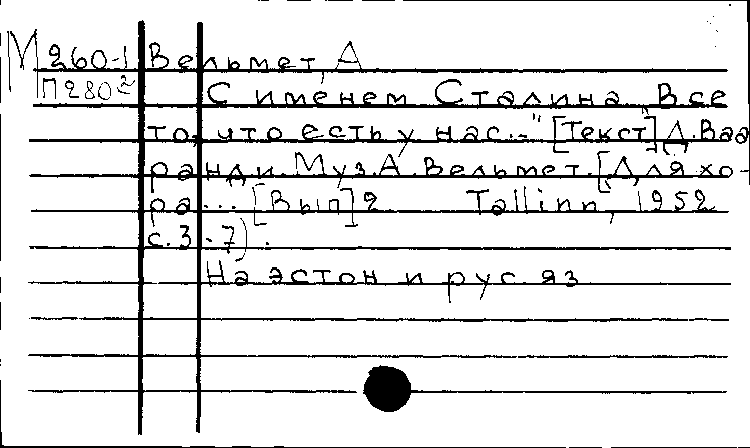 М 260-1 Вельмет, А
П280² С именем Сталина „Все
то, что есть у нас..." [Текст] Д. Ваа
ранди. Муз. А. Вельмет. [Для хо-
ра... [Вып] 2 Tallinn, 1952
с. 3-7).
На эстон и рус. яз